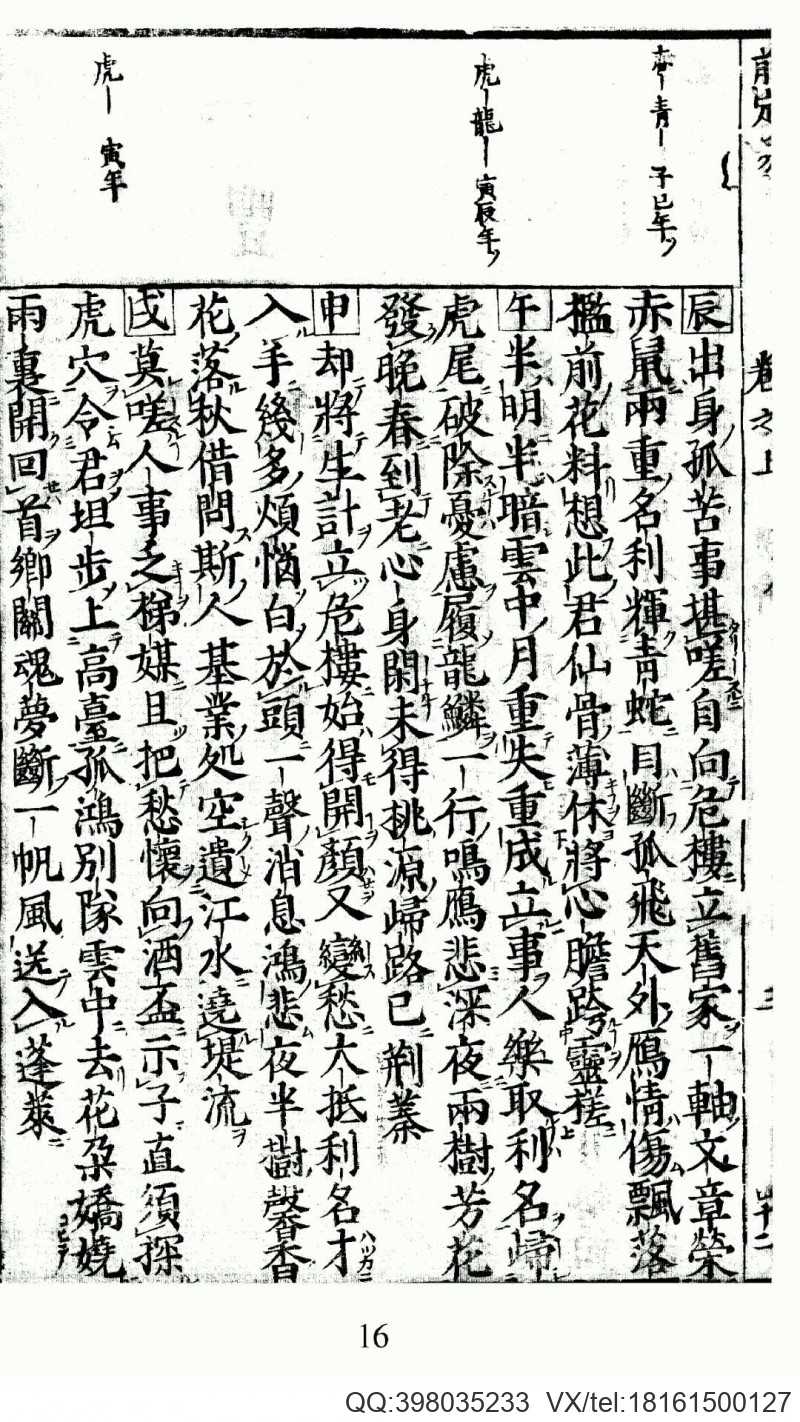 卷之上
虎｜龍｜寅辰年
虎｜寅年
辰出身孤苦事堪嗟自向危樓立舊家一軸文章榮
赤鼠兩重名利輝青蛇目斷孤飛天外鴈情傷飄落
檻前花料想此君仙骨薄休將心膽跨靈槎
午半明半暗雲中月重失重成立事人樂取利名歸
虎尾破除憂慮履龍鱗一行鳴鴈悲深夜兩樹芳花
發晚春到老心身閑未得桃源歸路已荆蓁
申却將生計立危樓始得開顏又變愁大抵利名才
入手幾多煩惱白於頭一聲消息鴻悲夜半樹馨香
花落秋借問斯人基業処空遺江水遶堤流
戌莫嗟人事乏梯媒且把愁懷向酒盃示子直須探
虎穴令君坦步上高臺孤鴻別隊雲中去花朶嬌嬈
雨裏開回首鄉關魂夢斷一帆風送入蓬萊
16
QQ:398035233 VX/tel:18161500127